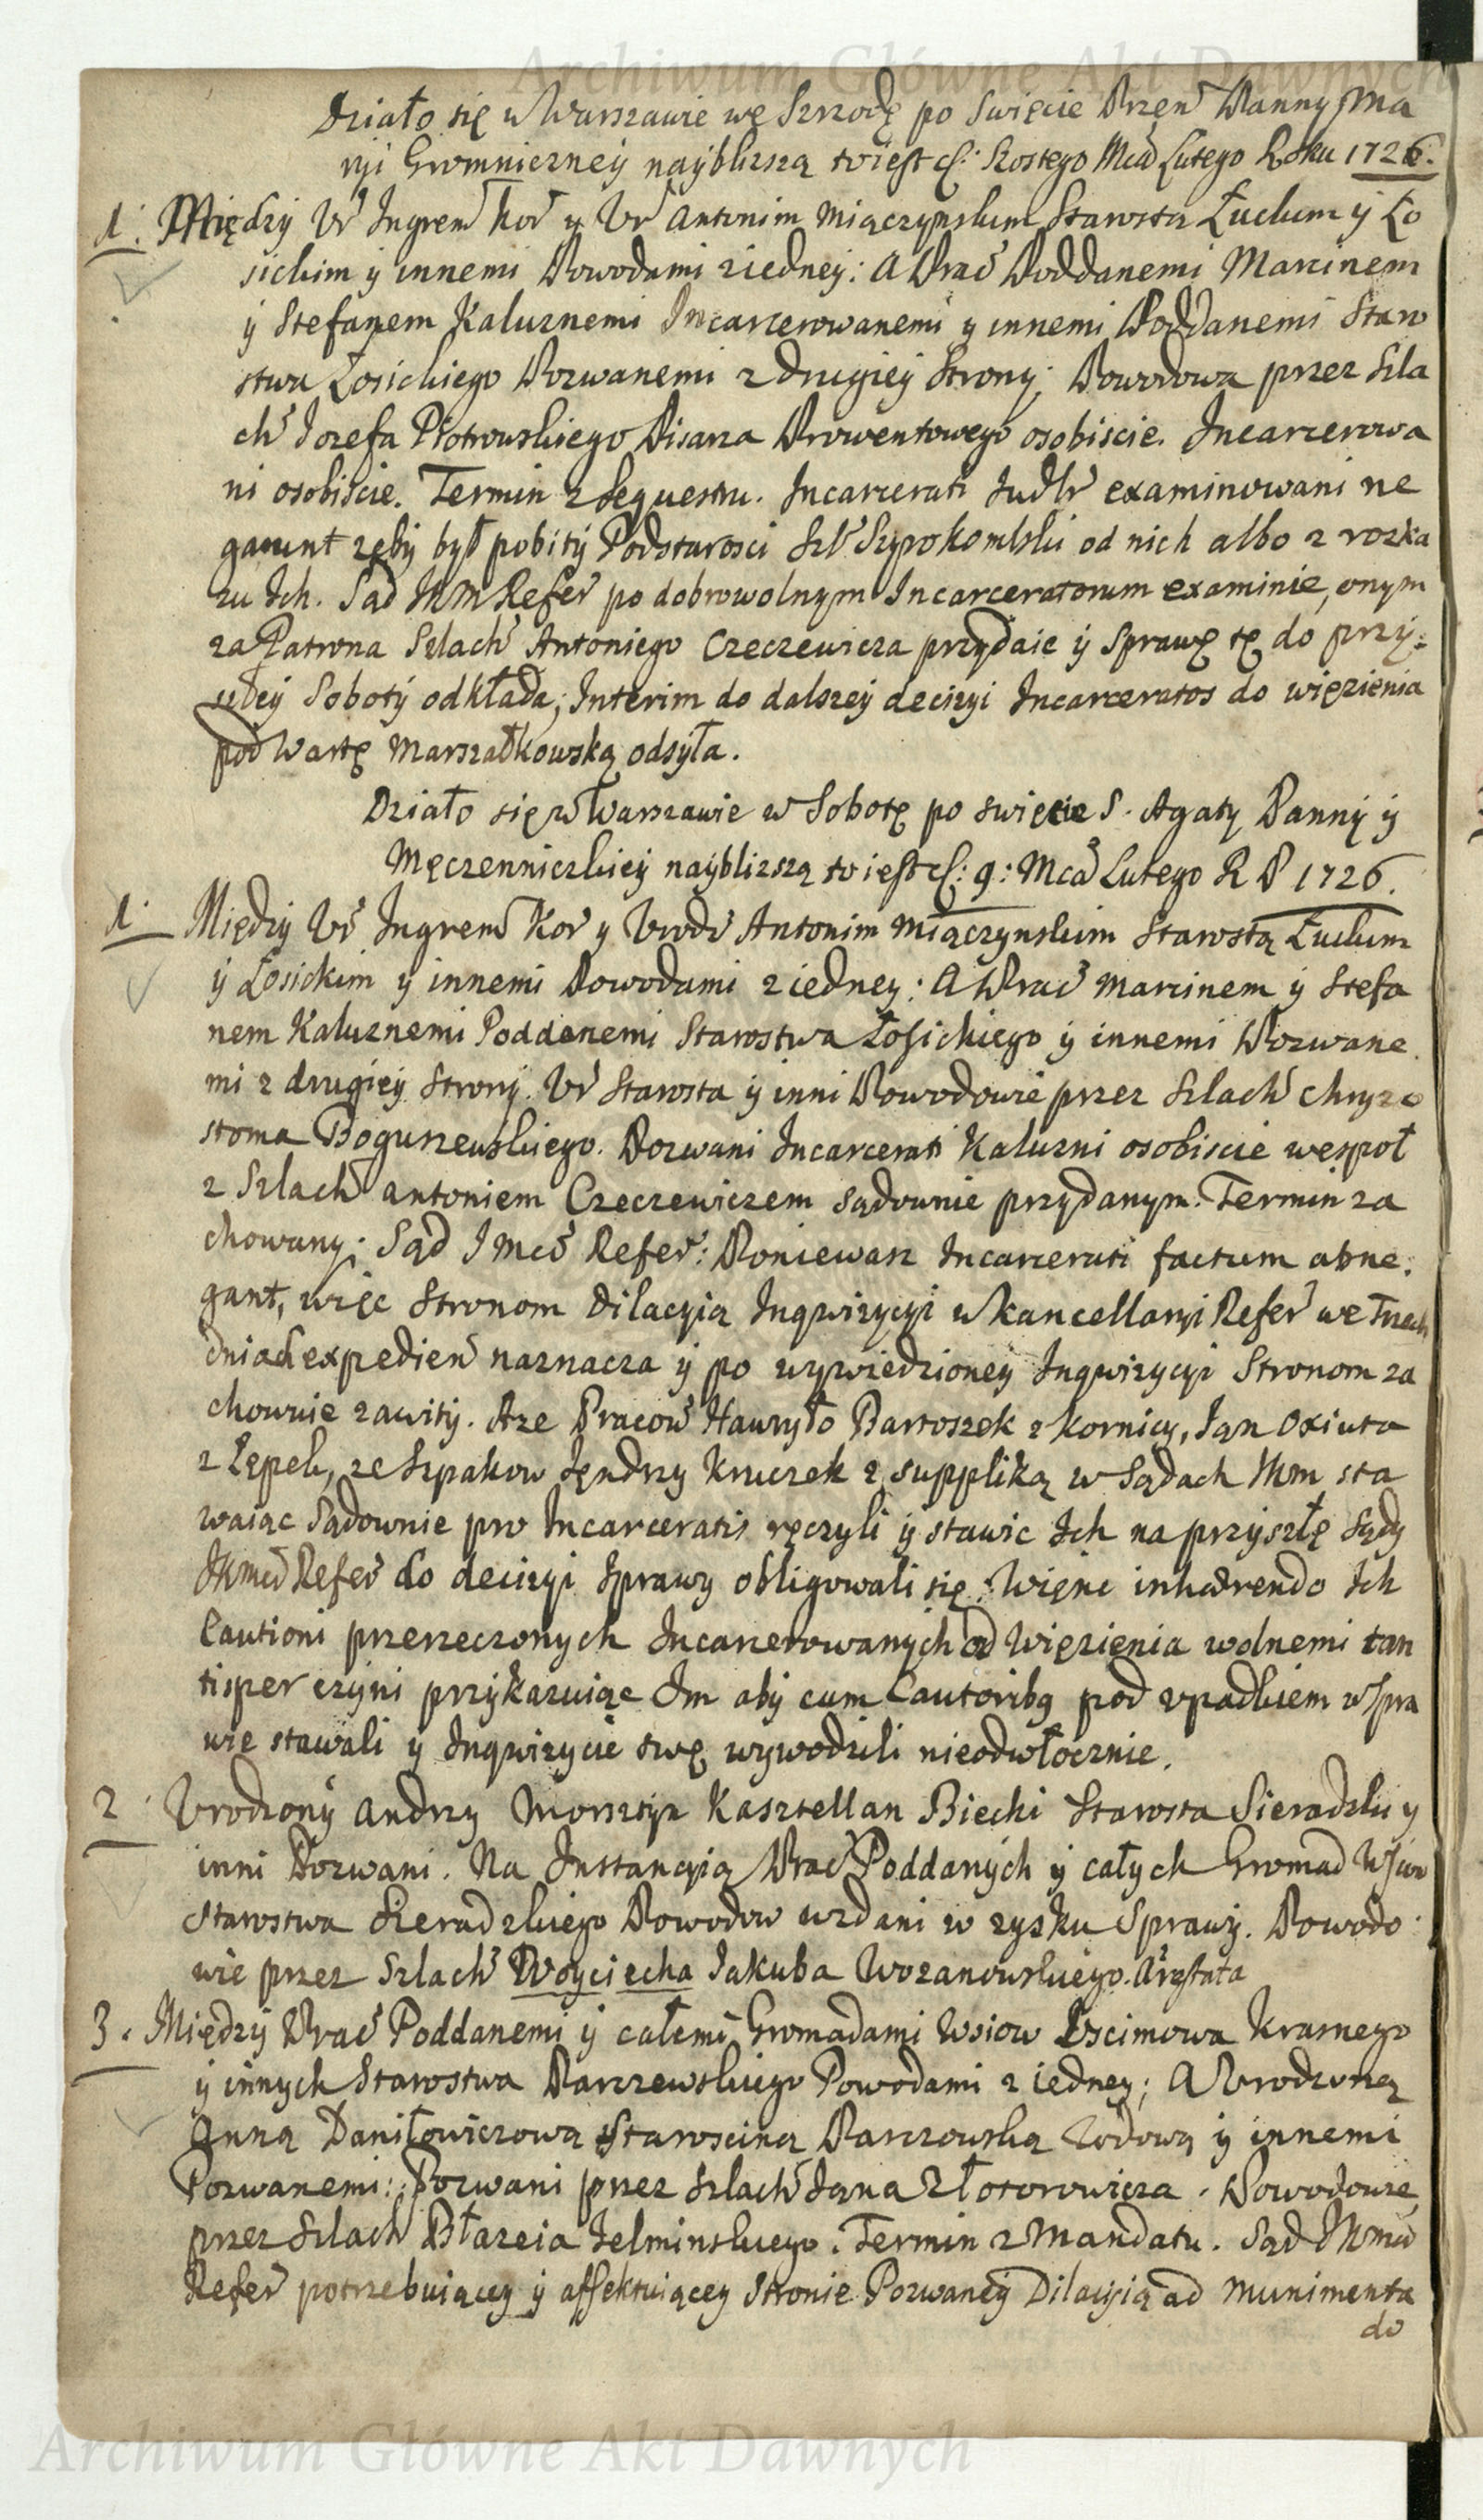 Archiwum Główne Akt Dawnych
Działo się w Warszawie we Szrzodę po Swięcie Przen Panny Ma
ryi Gromniczney naybliszą to iest d. Szostego Mca Lutego Roku 1726.
1. Między Ur Ingrem kor y Ur Antonim Miączynskim Starostą Łuckim y Ło
sickim y innemi Powodami z iedney: A Prac Poddanemi Marcinem
y Stefanem Kaluznemi Incarcerowanemi y innemi Poddanemi Staro
stwa Łosickiego Pozwanemi z drugiey Strony; Powodowa przez Szla
ch Iozefa Piotrowskiego Pisarza Prowentowego osobiscie. Incarcerowa
ni osobiscie. Termin z Sequestru. Incarcerati Iudlr examinowani ne
garunt zeby był pobity Podstarosci Szl od nich albo z rozka
zu Ich. Sąd JKM Refer po dobrowolnym Incarceratorum examinie, onym
za Patrona Szlach Antoniego Czeczewicza przydaie y Sprawę tę do przy:
szłey Soboty odkłada; Interim do dalszey decizyi Incarceratos do więzienia
pod Wartę Marszałkowską odsyła.
Działo się w Warszawie w Sobotę po swięcie S. Agaty Panny y
Męczenniczkiey naybliszszą to iest d: 9: Mca Lutego R P 1726.
1. Między Ur Ingrem Kor y Urodz Antonim Miączynskim Starostą Łuckim
y Łosickim y innemi Powodami z iedney: A Prac Marcinem y Stefa
nem Kaluznemi Poddanemi Starostwa Łosickiego y innemi Pozwane
mi z drugiey Strony. Ur Starosta y inni Powodowie przez Szlach Chryzo
stoma Boguszewskiego. Pozwani Incarcerati Kaluzni osobiscie wespoł
z Szlach Antoniem Czeczewiczem sądownie przydanym. Termin za
chowany; Sąd J Mci Refer: Poniewasz Incarcerati factum abne:
gant, więc Stronom Dilacyią Inqwizycyi w kancellaryi Refer we Trzech
dniach expedien naznacza y po wywiedzioney Inqwizycyi Stronom za
chowuie zawity. A ze Pracow Hawryło Bartoszek z Kornicy, Ian Oxiuta
z Łepek, ze Szpakow Iędrzy Kruczek z suppliką w Sądach JKM sta
waiąc Sądownie pro Incarceratis ręczyli y stawic Ich na przyszłe Sądy
JKmci Refer do decizyi Sprawy obligowali się: Więnc inhærendo Ich
Cautioni przerzeczonych Incarcerowanych od Więzienia wolnemi tan
tisper czyni przykazuiąc Im aby cum Cautoribg pod upadkiem w spra
wie stawali y Inqwizycie swę wywodzili nieodwłocznie.
2. Urodzony Andrzy Morsztyn Kasztellan Biecki Starosta Sieradzki y
inni Pozwani. Na Instancyią Prac Poddanych y całych Gromad Wsiow
Starostwa Sieradzkiego Powodow wzdani w zysku Sprawy. Powodo
wie przez Szlach Woyciecha Iakuba Wozanowskiego. Arestata
3. Między Prac Poddanemi y całemi Gromadami Wsiow Uscimowa Krasnego
y innych Starostwa Parczewskiego Powodami z iedney; A Urodzoną
Anną Daniłowiczową Staroscinąą Parczowską Wdową y innemi
Pozwanemi: Pozwani przez Szlach Iana Złotorowicza. Powodowie
przez Szlach Błazeia Ielminskiego. Termin z Mandatu. Sąd JKmci
Refer potrzebuiącey y affektuiącey Stronie Pozwaney Dilacyią ad Munimenta
do
Archiwum Główne Akt Dawnych